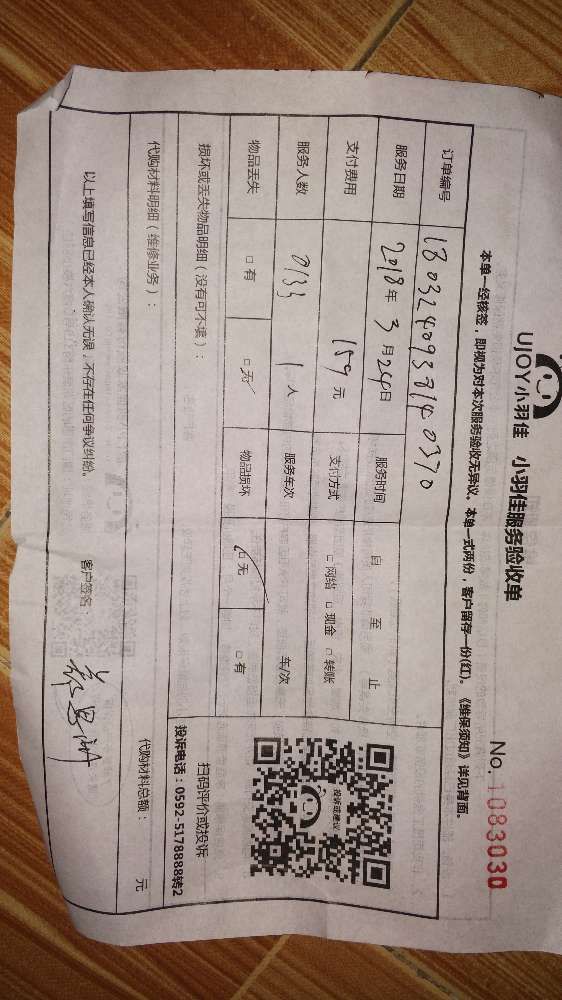 UJOY小羽佳 小羽佳服务验收单
No. 1083030
本单一经核签，即视为对本次服务验收无异议。本单一式两份，客户留存一份(红)。《维保须知》详见背面。
订单编号 180324093814 0370
服务日期 2018年 3月24日 服务时间 自 至 止
支付费用 159元 支付方式 □网络 □现金 □转账
服务人数 0133 1人 服务车次 车/次
物品丢失 □有 □无 物品损坏 □无 □有
投诉或建议
扫码评价或投诉
投诉电话：0592-5178888转2
损坏或丢失物品明细（没有可不填）：
代购材料明细（维修业务）： 代购材料总额： 元
以上填写信息已经本人确认无误，不存在任何争议纠纷。 客户签名：